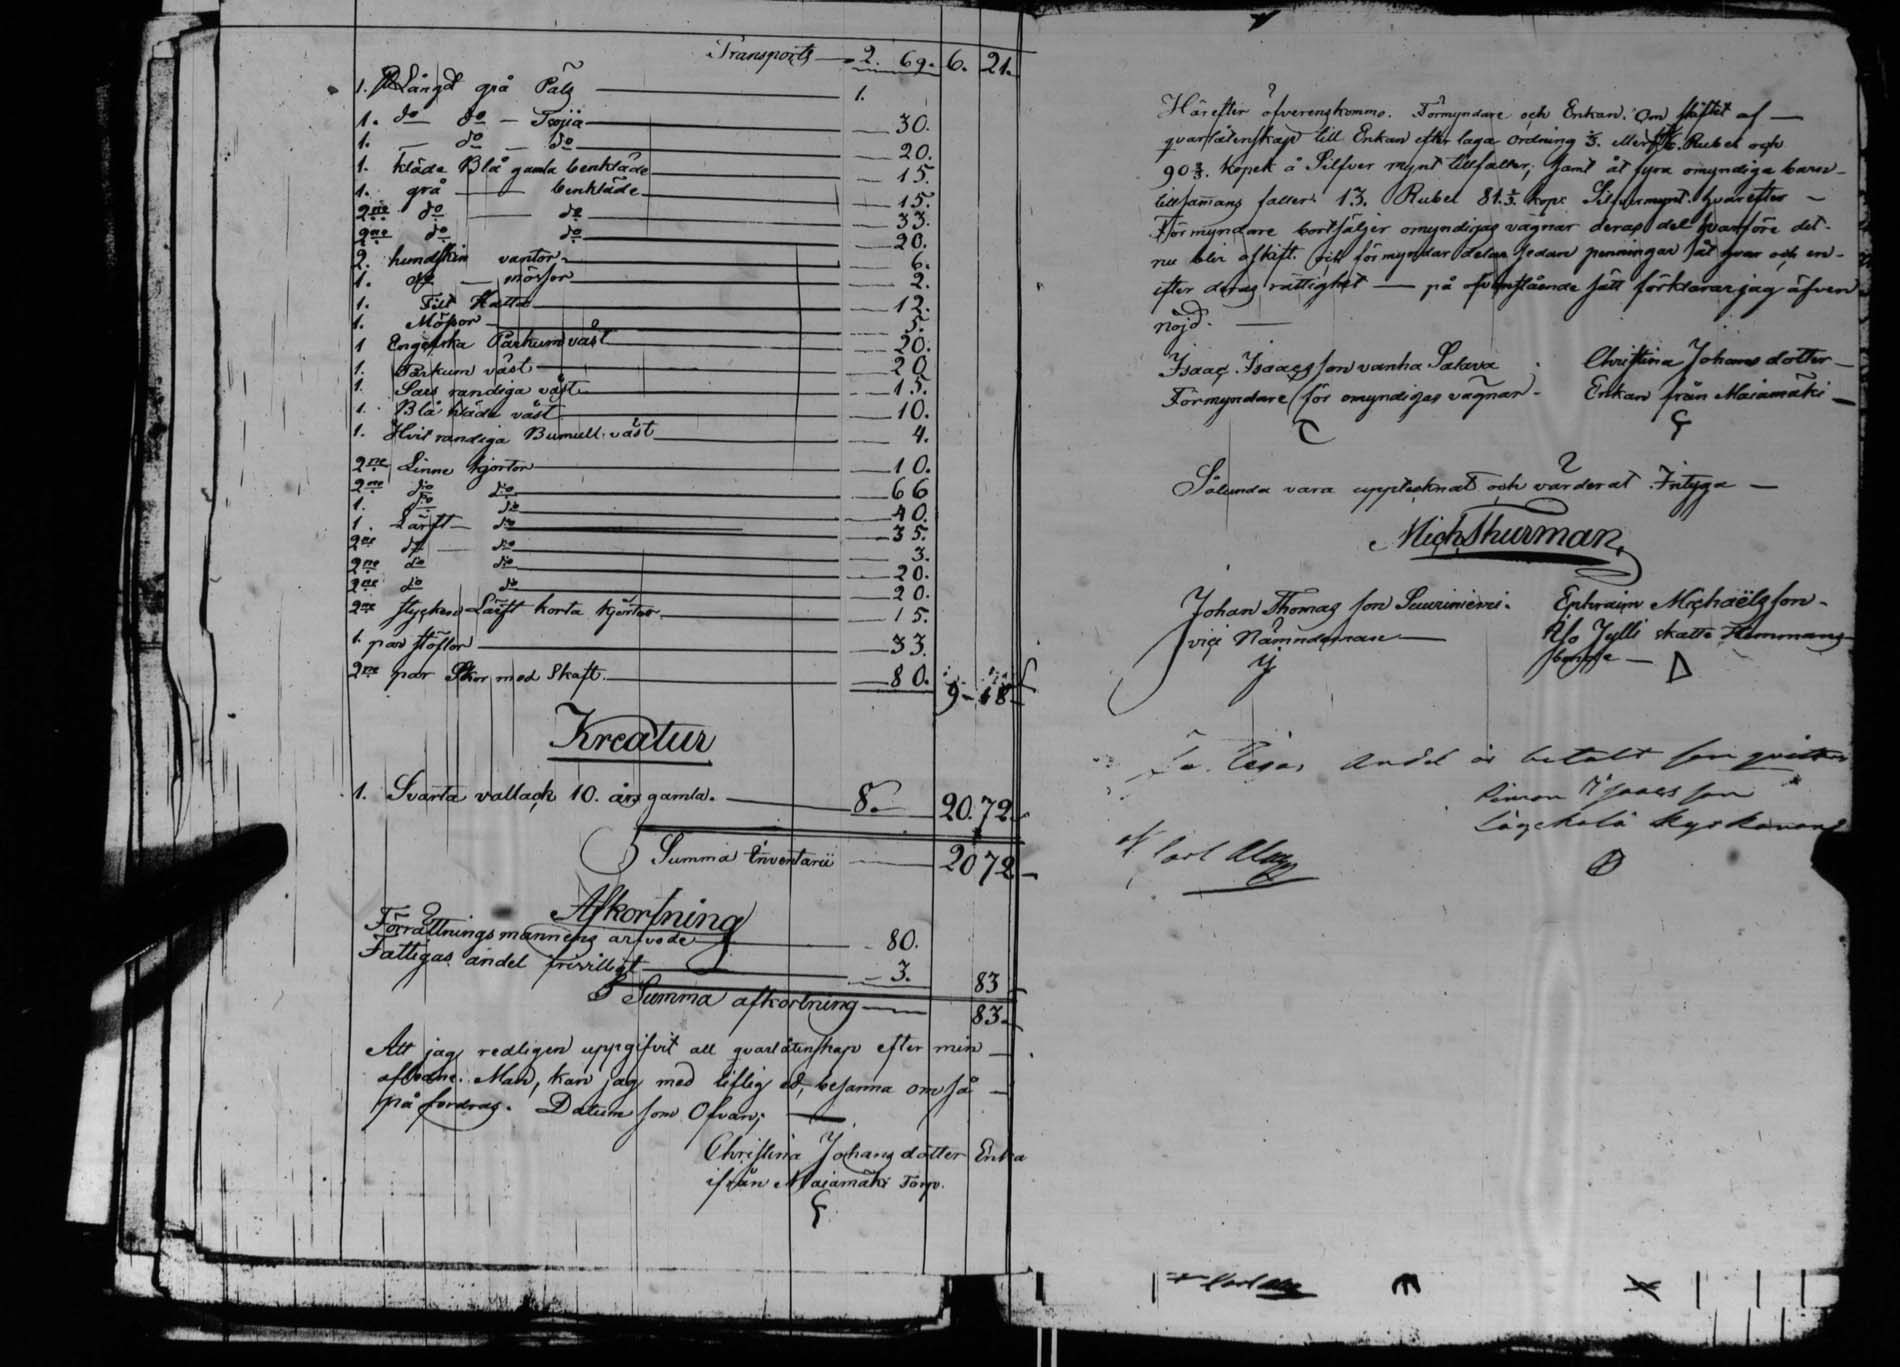 Transport 2. 69. 6. 21.
1. Långd grå Pals 1.
1. do do Tröjia 30.
1. do do 20.
1. kläde Blå gamla benkläde 15.
1. grå benkläde 15.
2ne do do 33.
2ne do do 20.
2. hundskin vantor 6.
1. do mössor 2.
1. Filt Hatta 12.
1. Mössor 5.
1 Engelska Parkum väst 20.
1. Parkum väst 20
1. Sars randiga väst 15.
1. Blå kläde väst 10.
1. Hvit randiga Bumull. väst 4.
2ne Linne kjortor 10.
2ne do do 66
1. do do 40.
1. Lärft do 35.
2ne do do 3.
2ne do do 20.
2ne do do 20.
2ne stycken Lärft korta kjortor 15.
1. par stöflor 33.
2ne par Skor med Skaft. 80. 9 - 48
Kreatur
1. Svarta vallack 10. års gamla. 8. 20. 72.
Summa Inventarii 20 72
Afkortning
Förrättningsmannens arvode 80.
Fattigas andel frivilligt 3. 83
Summa afkortning 83.
Att jag redligen uppgifvit all qvarlåtenskap efter min
aflidne Man, kan jag med liflig ed, besanna om så
på fordras. Datum som Ofvan;
Christina Johans dotter Enka
ifrån Maiamäki Torp.
Härefter öfverenskommo. Förmyndare och Enkan. Om skiftet af
qvarlåtenskap till Enkan efter laga ordning 2/3. eller 6. Rubel och
90 2/3. kopek å Silfver mynt tillfaller; samt åt fyra omyndiga barn
tillsamans faller. 13. Rubel 81 1/3. kop: Silfvermynt. hvarefter
Förmyndare bortsäljer omyndigas vägnar deras del hvarföre det
nu blir afskift. och förmyndar delar sedan penningar åt hvar och en
efter deras rättighet på ofvanstående sätt förklarar jag äfven
nöjd.
Isaac Isaacs son vanha Salava
Christina Johans dotter
Förmyndare för omyndigas vägnar
Enkan från Maiamäki
Sålunda vara upptecknat och värderat. Intyga
Mich Thurman
Johan Thomas son Suuriniemi.
Ephraim Michaëls son
vice Nämndeman
Iso Jylli skatte Hemmans
bonde
andel är betalt som qvitteras
Simon Isaacs son
kyrkovärd
Carl